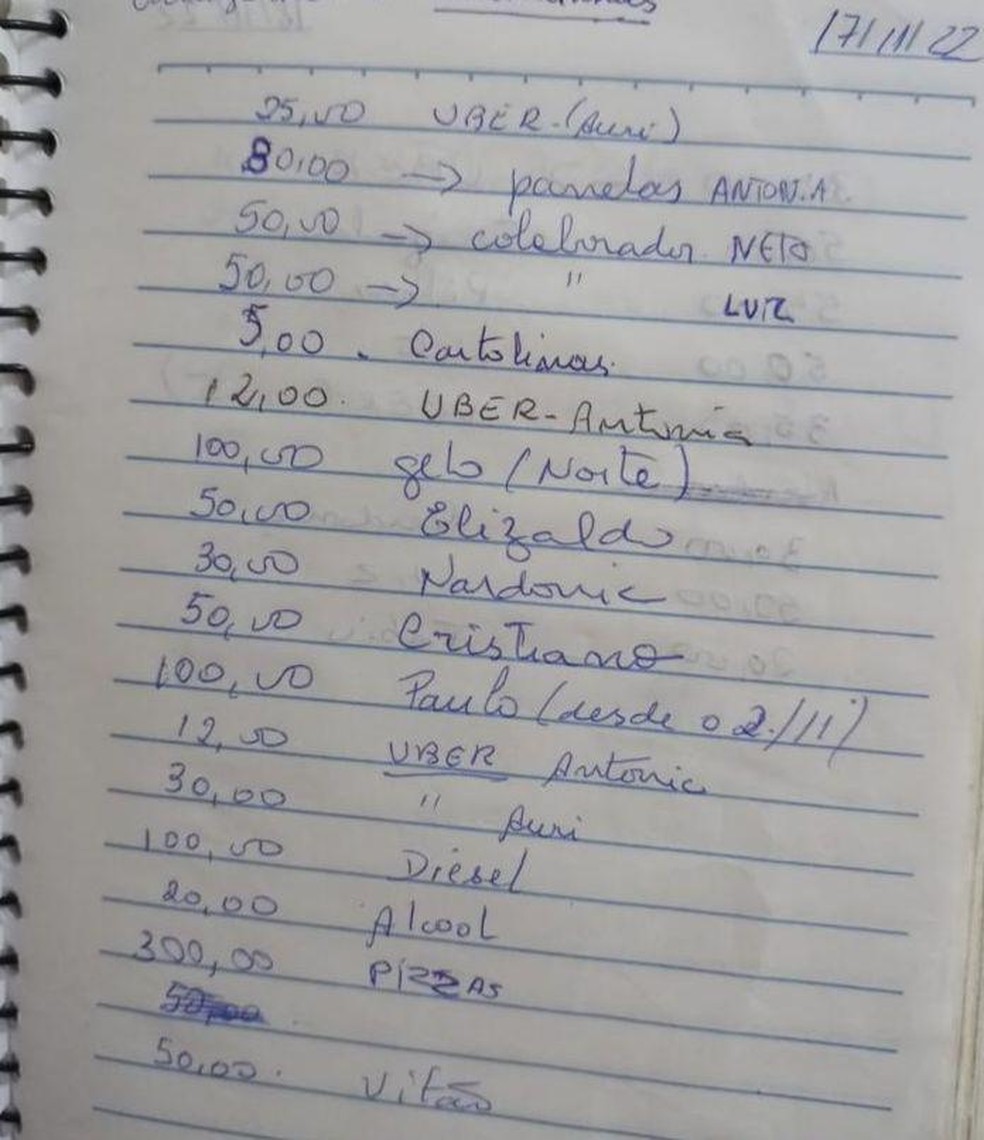 17/11/22
25,00 UBER-(Auri)
80,00 → panelas ANTONIA
50,00 → colaborador NETO
50,00 → " LUIZ
5,00 - Cartolinas.
12,00. UBER-Antonia
100,00 gelo (Noite)
50,00 Elizaldo
30,00 Nardonic
50,00 Cristiano
100,00 Paulo (desde o 2/11)
12,00 UBER Antonia
30,00 " Auri
100,00 Diesel
20,00 Alcool
300,00 PIZZAS
50,00. Vitão